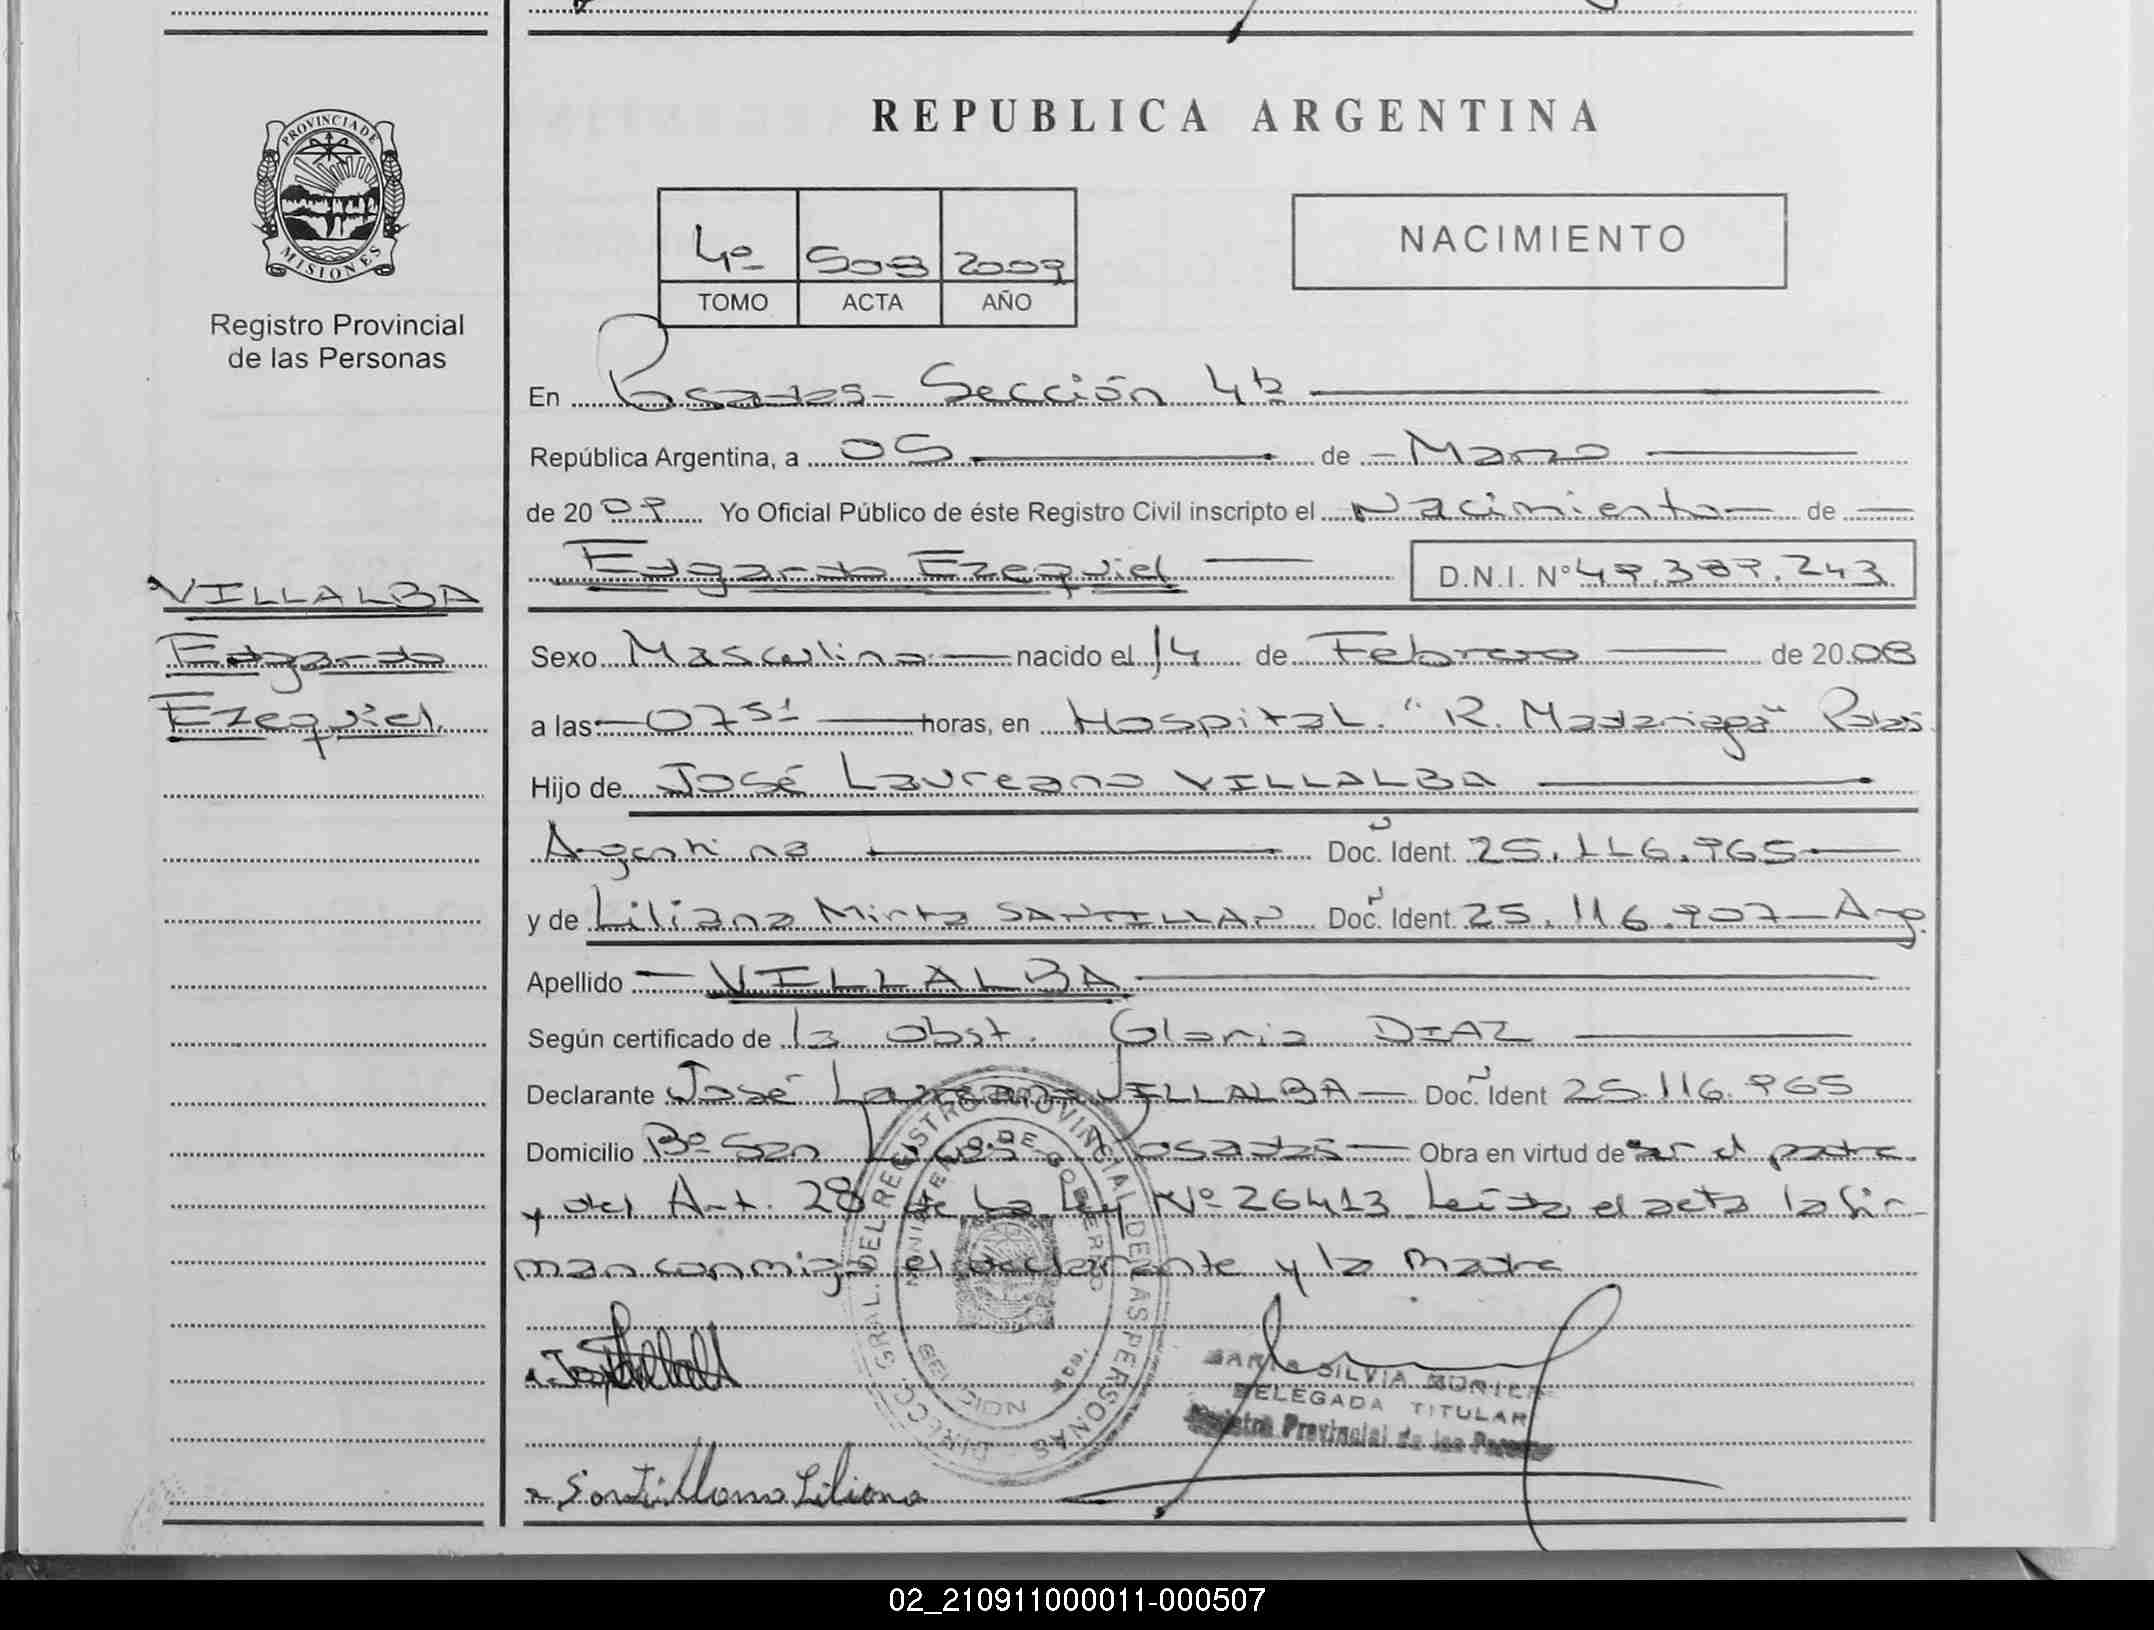 REPUBLICA ARGENTINA
PROVINCIA DE
MISIONES
Registro Provincial
de las Personas
4º 508 2009
TOMO ACTA AÑO
NACIMIENTO
En Posadas- Sección 4ta
República Argentina, a 05 de - Marzo
de 2009 Yo Oficial Público de éste Registro Civil inscripto el Nacimiento de
Edgardo Ezequiel D.N.I. Nº 49.389.243
VILLALBA
Edgardo
Ezequiel.
Sexo Masculino nacido el 14 de Febrero de 2008
a las 07 51 horas, en Hospital. "R. Madariaga" Pdas.
Hijo de José Laureano VILLALBA
Argentina Doc. Ident. 25.116.965
y de Liliana Mirta SANTILLAN Doc. Ident. 25.116.907 - Arg.
Apellido - VILLALBA
Según certificado de la obst. Gloria DIAZ
Declarante José Laureano VILLALBA - Doc. Ident 25.116.965
Domicilio Bº San Posadas - Obra en virtud de ser el padre
y del Art. 28 de la Ley Nº 26413 Leída el acta la fir-
man conmigo el declarante y la Madre
DIRECC. GRAL. DEL REGISTRO PROVINCIAL DE LAS PERSONAS
MINISTERIO DE GOBIERNO
SILVIA
DELEGADA TITULAR
Registro Provincial de las Personas
Santillana Liliana
02_210911000011-000507